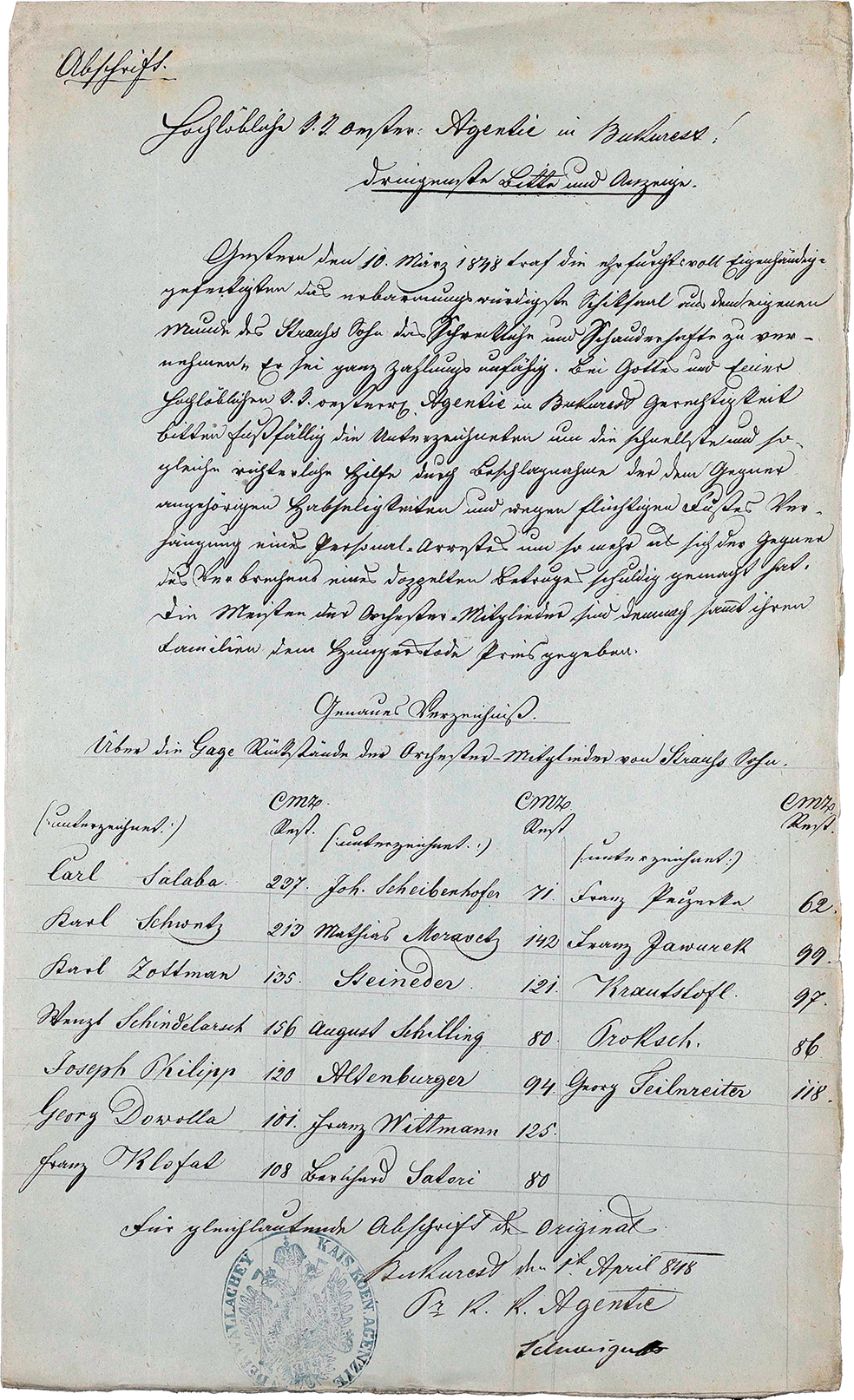 Abschrift.
Hochlöbliche k. k. oester: Agentie in Bukurest!
dringenste Bitte und Anzeige.
Gestern den 10. März 1848 traf die ehrfurchtsvoll Eigenhändig-
gefertigten das erbarmungswürdigste Schiksaal aus dem eigenen
Munde des Strauhs Sohn das Schreckliche und Schauderhafte zu ver-
nehmen „Er sei ganz zahlungsunfähig. Bei Gottes und Einer
Hochlöblichen k. k. oesterr. Agentie in Bukurest Gerechtigkeit
bitten fußfällig die Unterzeichneten um die schnellste und so-
gleiche richterliche Hilfe durch Beschlagnahme der dem Gegner
angehörigen Habseligkeiten und wegen flüchtigen Fußes Ver-
hängung eines Personal-Arrestes um so mehr als sich der Gegner
des Verbrechens eines doppelten Betruges schuldig gemacht hat.
Die Meisten der Orchester-Mitglieder sind demnach sammt ihren
Familien dem Hungerstode Preis gegeben.
Genaues Verzeichniß.
Über die Gage Rückstände der Orchester-Mitglieder von Strauhs Sohn.
(: unterzeichnet :) Rest. (: unterzeichnet :) Rest (: unterzeichnet :) Rest.
Carl Salaba 237. Joh. Scheibenhofer 71. Franz 62.
Karl Schwetz 213 Mathias Moravetz 142 Franz Jawurek 99.
Karl Zottman 135. Steineder 121. Krautstofl. 97.
Wenzl Schindelarsch 156 August Schilling 80 Proksch. 86
Joseph Philipp 120 Altenburger 94. Georg Feilnreiter 118.
Georg Dowolla 101. Franz Wittmann 125.
Franz Klofat 108 Bernhard Satori 80
Für gleichlautende Abschrift des Original
Bukurest den 1t. April 848
Pr K. K. Agentie
KAIS KOEN AGENZIE
DER WALLACHEY